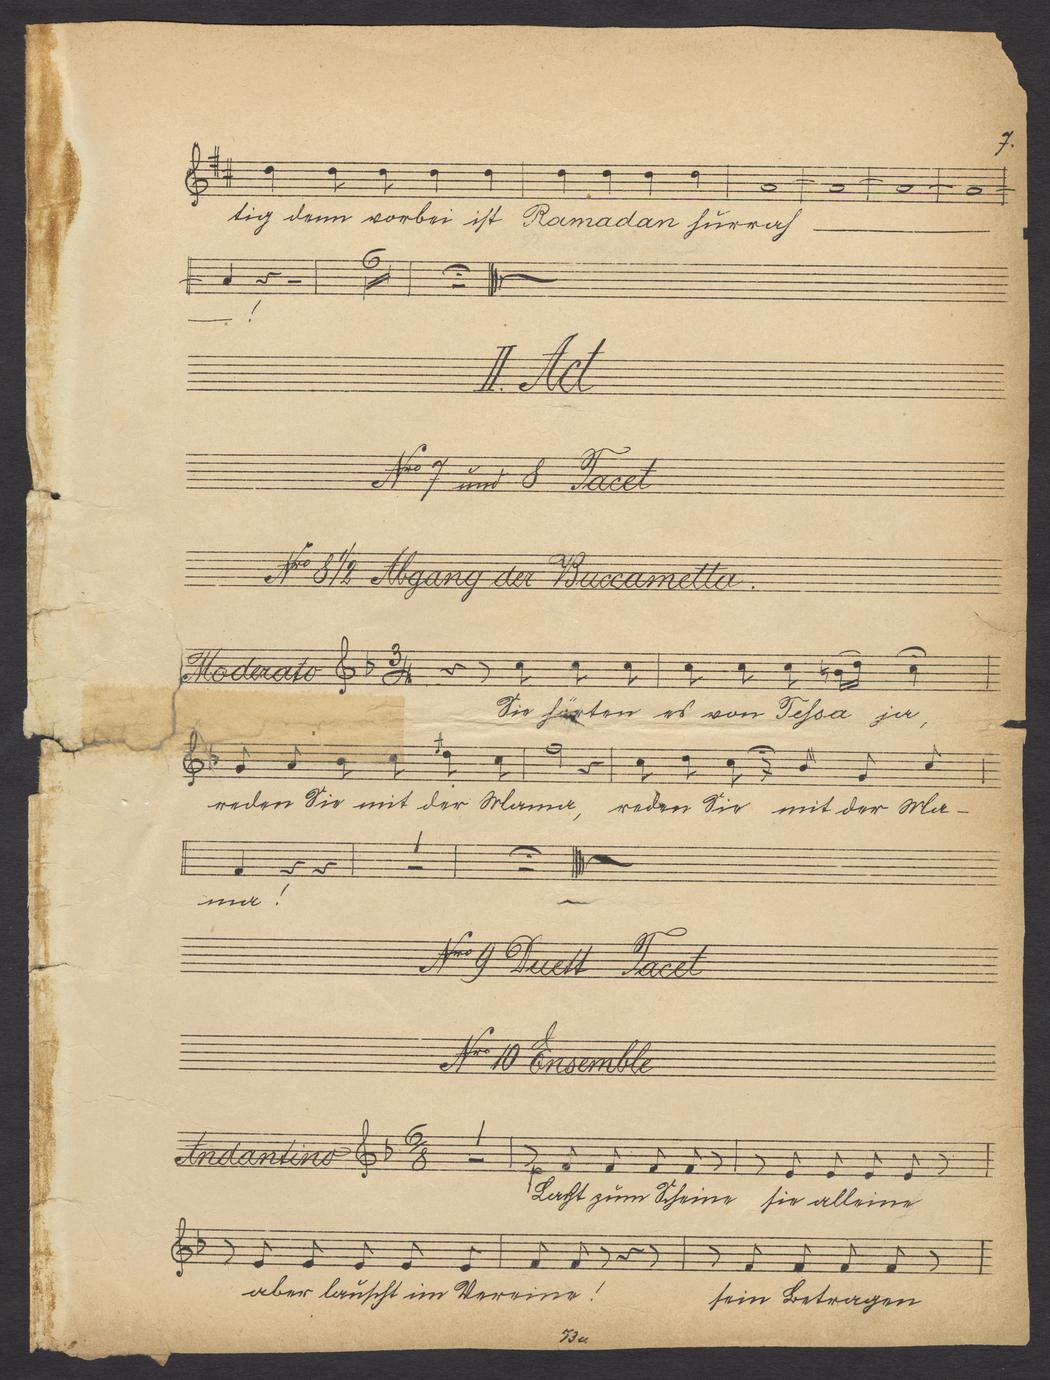 7.
tig denn vorbei ist Ramadan hurrah
6
!
II. Act
Nro 7 und 8 Tacet
Nro 8 1/2 Abgang der Buccametta.
Moderato 3/4
Sie hörten es von Tessa ja,
reden Sie mit der Mama, reden Sie mit der Ma-
1
ma!
Nro 9 Duett Tacet
Nro 10 Ensemble
Andantino 6/8 1
p
Lacht zum Scheine sie alleine
aber lauscht im Vereine! sein Betragen